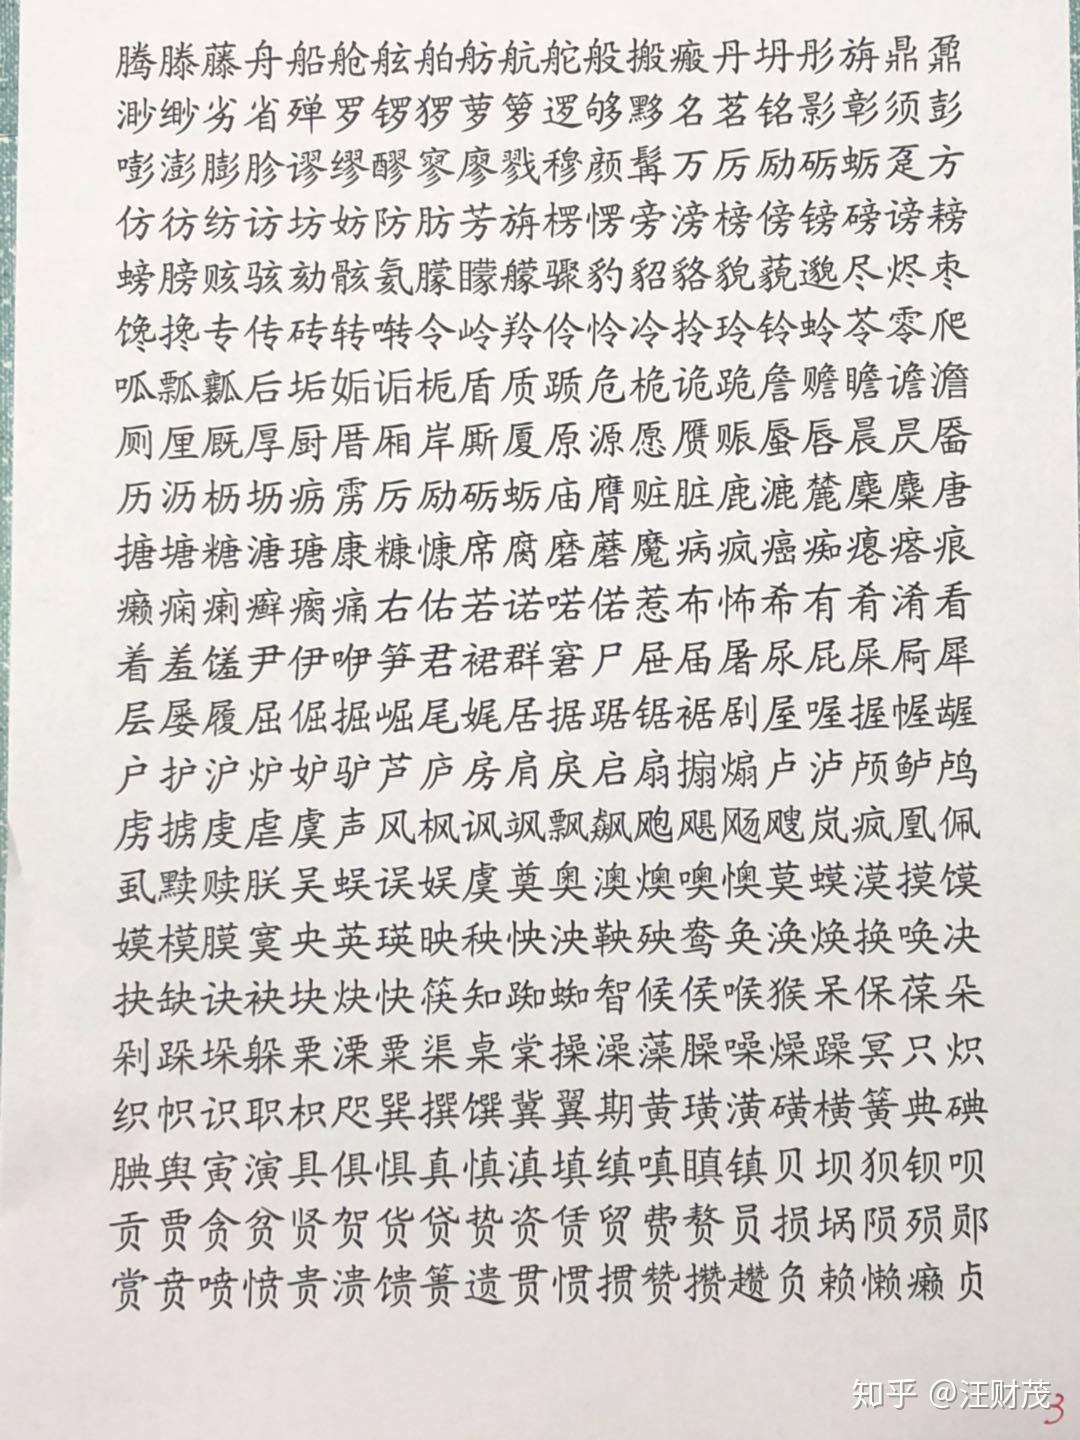 腾滕藤舟船舱舷舶舫航舵般搬瘢丹坍彤旃鼎鼐
渺缈劣省殚罗锣猡萝箩逻够夥名茗铭影彰须彭
嘭澎膨胗谬缪醪寥廖戮穆颜髯万厉励砺蛎趸方
仿彷纺访坊妨防肪芳旃楞愣旁滂榜傍镑磅谤耪
螃膀赅骇劾骸氦朦曚艨骤豹貂貉貌藐邈尽烬枣
馋搀专传砖转啭令岭羚伶怜冷拎玲铃蛉苓零爬
呱瓢瓤后垢姤诟栀盾质踬危桅诡跪詹赡瞻谵澹
厕厘厩厚厨厝厢岸厮厦原源愿赝赈蜃唇晨昃靥
历沥枥坜疬雳厉励砺蛎庙膺赃脏鹿漉麓麇麋唐
搪塘糖溏瑭康糠慷席腐磨蘑魔病疯癌痴瘪瘩痕
癞痫瘌癣瘸痛右佑若诺喏偌惹布怖希有肴淆看
着羞馐尹伊咿笋君裙群窘尸屉届屠尿屁屎屙犀
层屡履屈倔掘崛尾娓居据踞锯裾剧屋喔握幄龌
户护沪炉妒驴芦庐房肩戾启扇搧煽卢泸颅鲈鸬
虏掳虔虐虞声风枫讽飒飘飙飑飓飏飕岚疯凰佩
虱黩赎朕吴蜈误娱虞奠奥澳燠噢懊莫蟆漠摸馍
嫫模膜寞央英瑛映秧怏泱鞅殃鸯奂涣焕换唤决
抉缺诀袂块炔快筷知踟蜘智候侯喉猴呆保葆朵
剁跺垛躲栗溧粟渠桌棠操澡藻臊噪燥躁冥只炽
织帜识职枳咫巽撰馔冀翼期黄璜潢磺横簧典碘
腆舆寅演具俱惧真慎滇填缜嗔瞋镇贝坝狈钡呗
贡贾贪贫贤贺货贷贽资赁贸费赘员损埚陨殒郧
赏贲喷愤贵溃馈篑遗贯惯掼赞攒趱负赖懒癞贞
知乎 @汪财茂
3